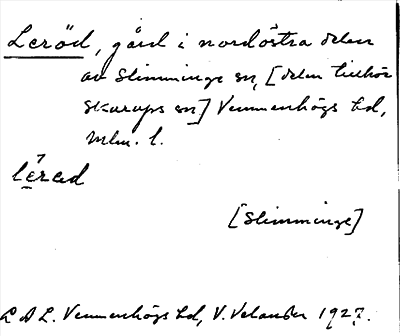 Leröd, gård i nordöstra delen
av Slimminge sn, [delen tillhör
Skurups sn] Vemmenhögs hd,
Mlm. l.
lérad
[Slimminge]
L A L. Vemmenhögs hd, V. Velander 1927.